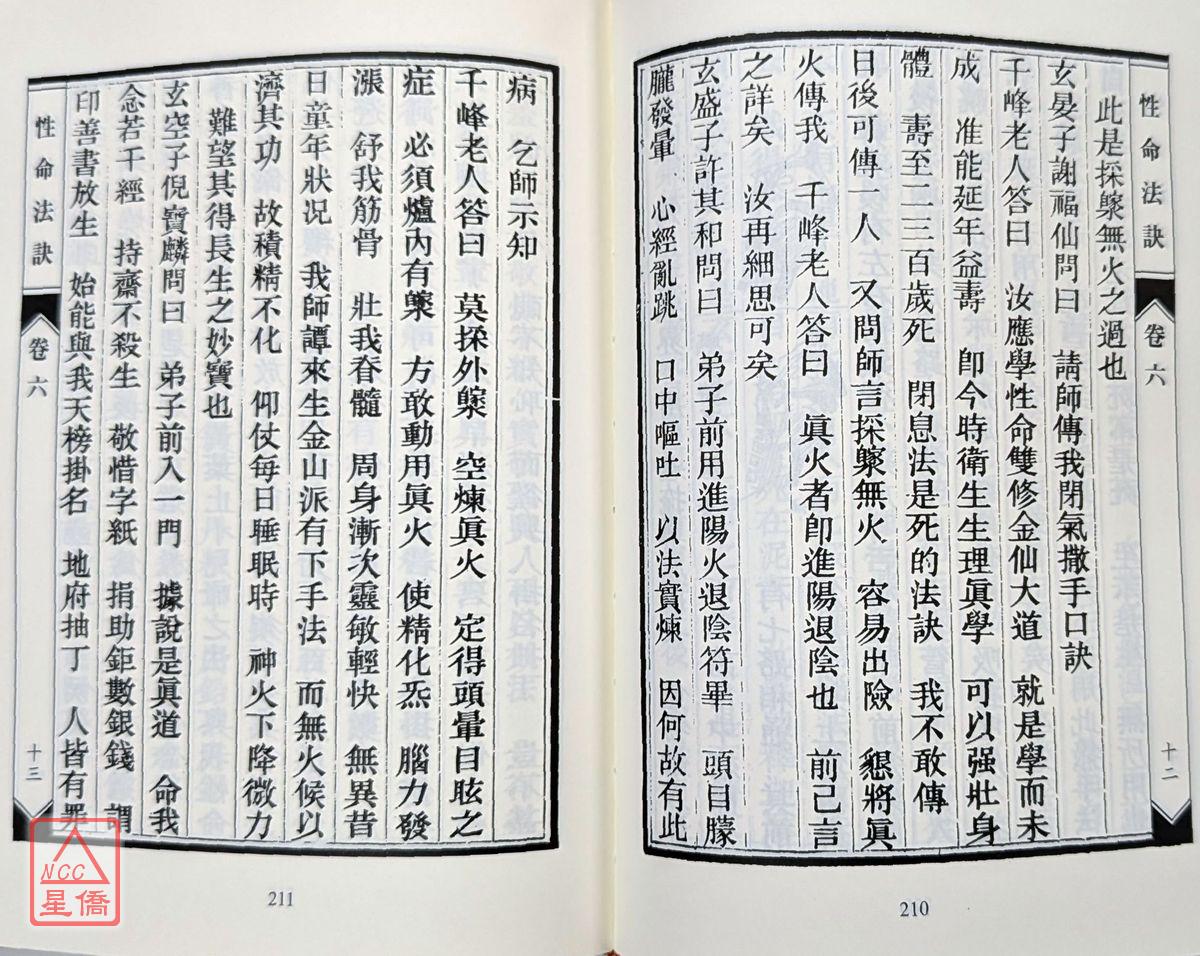 性命法訣
卷六
十二
此是採𣱛無火之過也
玄晏子謝福仙問曰 請師傳我閉氣撒手口訣
千峰老人答曰 汝應學性命雙修金仙大道 就是學而未
成 准能延年益壽 卽今時衛生生理眞學 可以强壯身
體 壽至一二三百歲死 閉息法是死的法訣 我不敢傳
日後可傳一人 又問師言採𣱛無火 容易出險 懇將眞
火傳我 千峰老人答曰 眞火者卽進陽退陰也 前已言
之詳矣 汝再細思可矣
玄盛子許其和問曰 弟子前用進陽火退陰符畢 頭目朦
朧發暈 心經亂跳 口中嘔吐 以法實煉 因何故有此
210
病 乞師示知
千峰老人答曰 莫採外𣱛 空煉眞火 定得頭暈目眩之
症 必須爐內有𣱛 方敢動用眞火 使精化炁 腦力發
漲 舒我筋骨 壯我脊髓 周身漸次靈敏輕快 無異昔
日童年狀况 我師譚來生金山派有下手法 而無火候以
濟其功 故積精不化 仰仗每日睡眠時 神火下降微力
難望其得長生之妙寶也
玄空子倪寶麟問曰 弟子前入一門 據說是眞道 命我
念若干經 持齋不殺生 敬惜字紙 捐助鉅數銀錢 謂
印善書放生 始能與我天榜掛名 地府抽丁 人皆有罪
性命法訣
卷六
十三
211
NCC
星僑